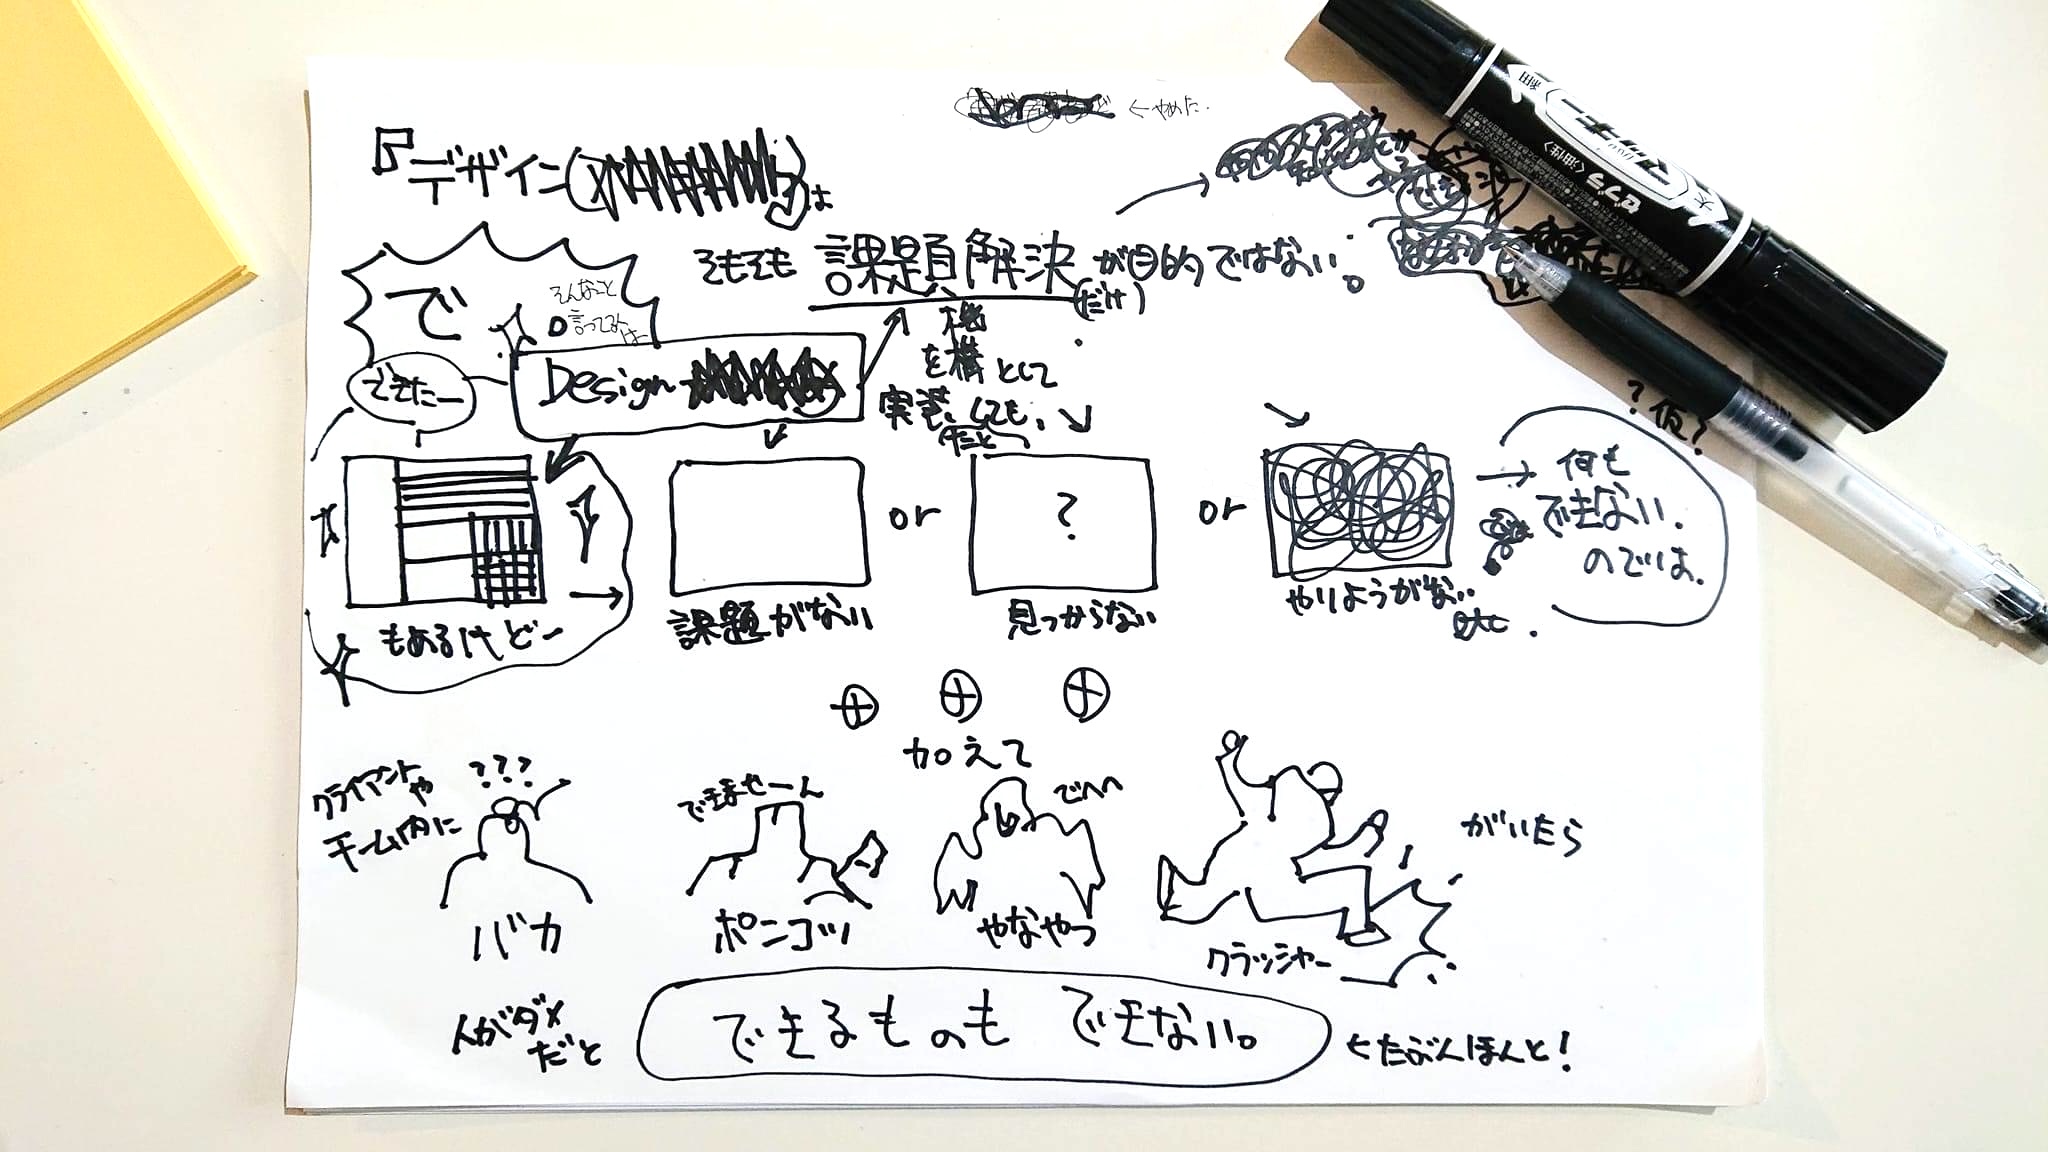 ←やめた.
『デザイン(
は
そもそも 課題解決が目的ではない。
(だけ)
で
そんなこと
言ってるんは
機
を構として
実装しても、
(だと)
Design
できたー
?仮?
?
or
or
→ 何も
できない.
のでは.
もあるけどー
課題がない
見つからない
やりようがない
etc.
⊕ ⊕ ⊕
加えて
クライアントや
チーム内に
???
できませーん
でへへ
がいたら
バカ
ポンコツ
やなやつ
クラッシャー
人がダメ
だと
できるものも できない。
←たぶんほんと!
ゼブラ
マッキー
〈油性〉
太
細